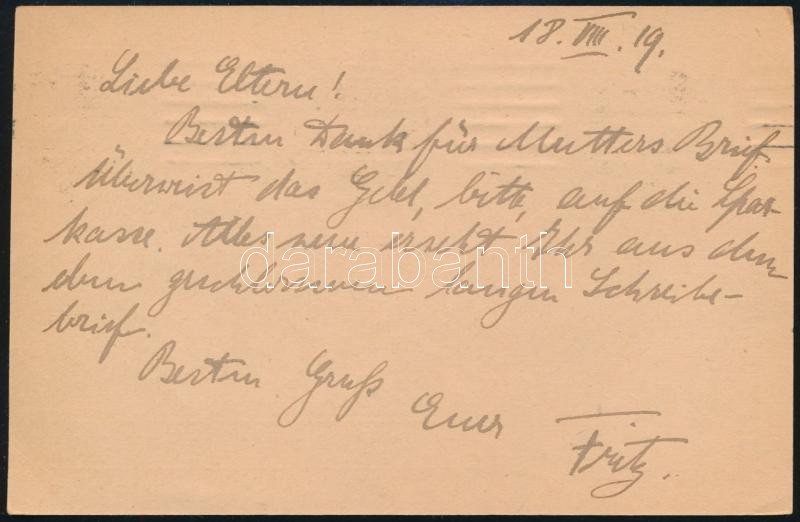 18. VIII. 19.
Liebe Eltern!
Besten Dank für Mutters Brief.
Überweist das Geld, bitte, auf die Spar-
kasse. Alles neue erseht Ihr aus dem
eben geschlossenen langen Schreibe-
brief.
Besten Gruß
Euer Fritz.
darabanth.com